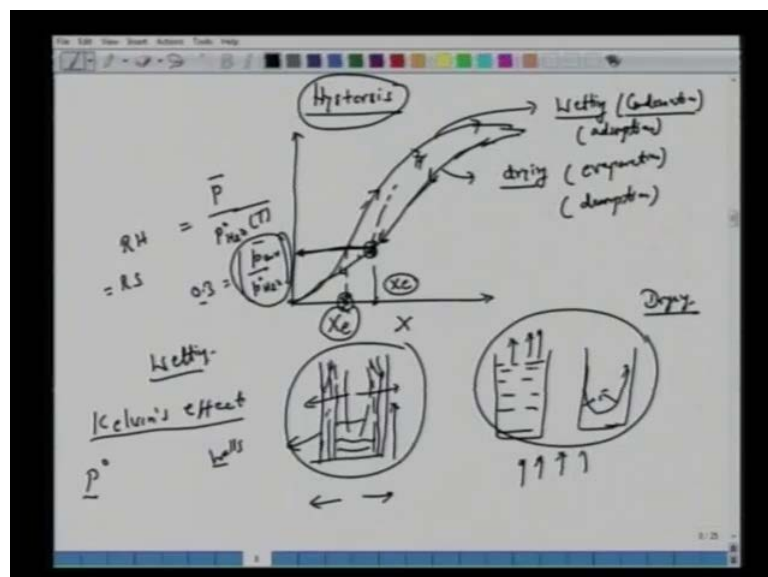 File Edit View Insert Actions Tools Help
Hystorsis
Wetting (Condensation)
(adsorption)
drying (evaporation)
(desorption)
RH = p̄ / p°H₂O (T)
= RS 0.3 =
Xe
Xe X
Drying
Wetting
Kelvin's effect
P°
Walls